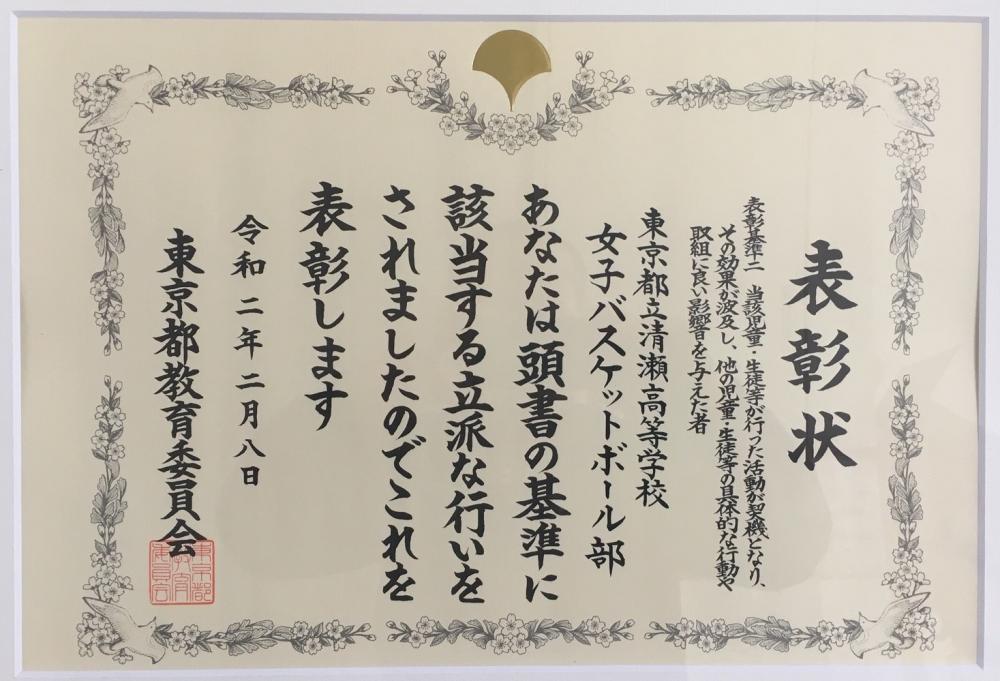 表彰状
表彰基準二　当該児童・生徒等が行った活動が契機となり、
その効果が波及し、他の児童・生徒等の具体的な行動や
取組に良い影響を与えた者
東京都立清瀬高等学校
女子バスケットボール部
あなたは頭書の基準に
該当する立派な行いを
されましたのでこれを
表彰します
令和二年二月八日
東京都教育委員会
東京都
教育
委員会